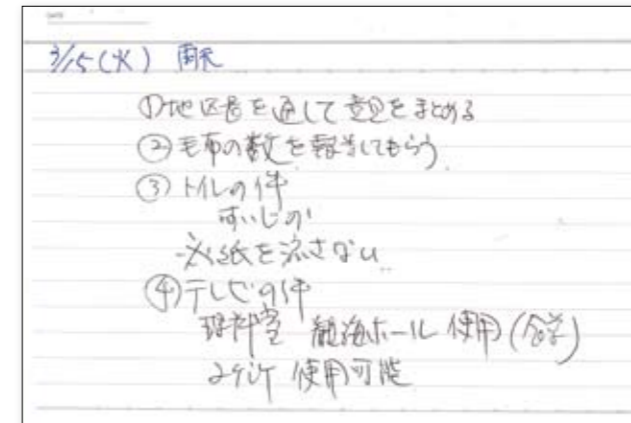 DATE
3/15(火)
①地区長を通して意見をまとめる
②毛布の数を報告してもらう
③トイレの件
すいじの
紙を流さない
④テレビの件
理科室 ホール 使用()
2ヶ所 使用可能